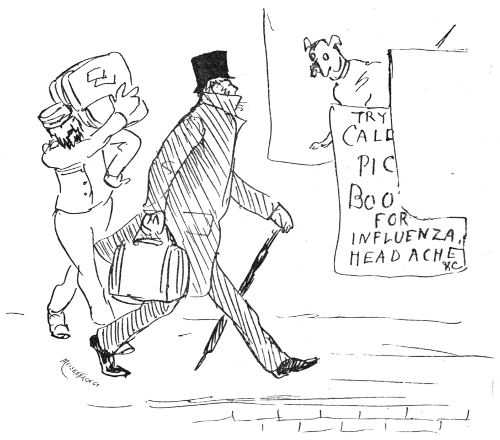 TRY
CALD
PIC
BOO
FOR
INFLUENZA,
HEADACHE
&C